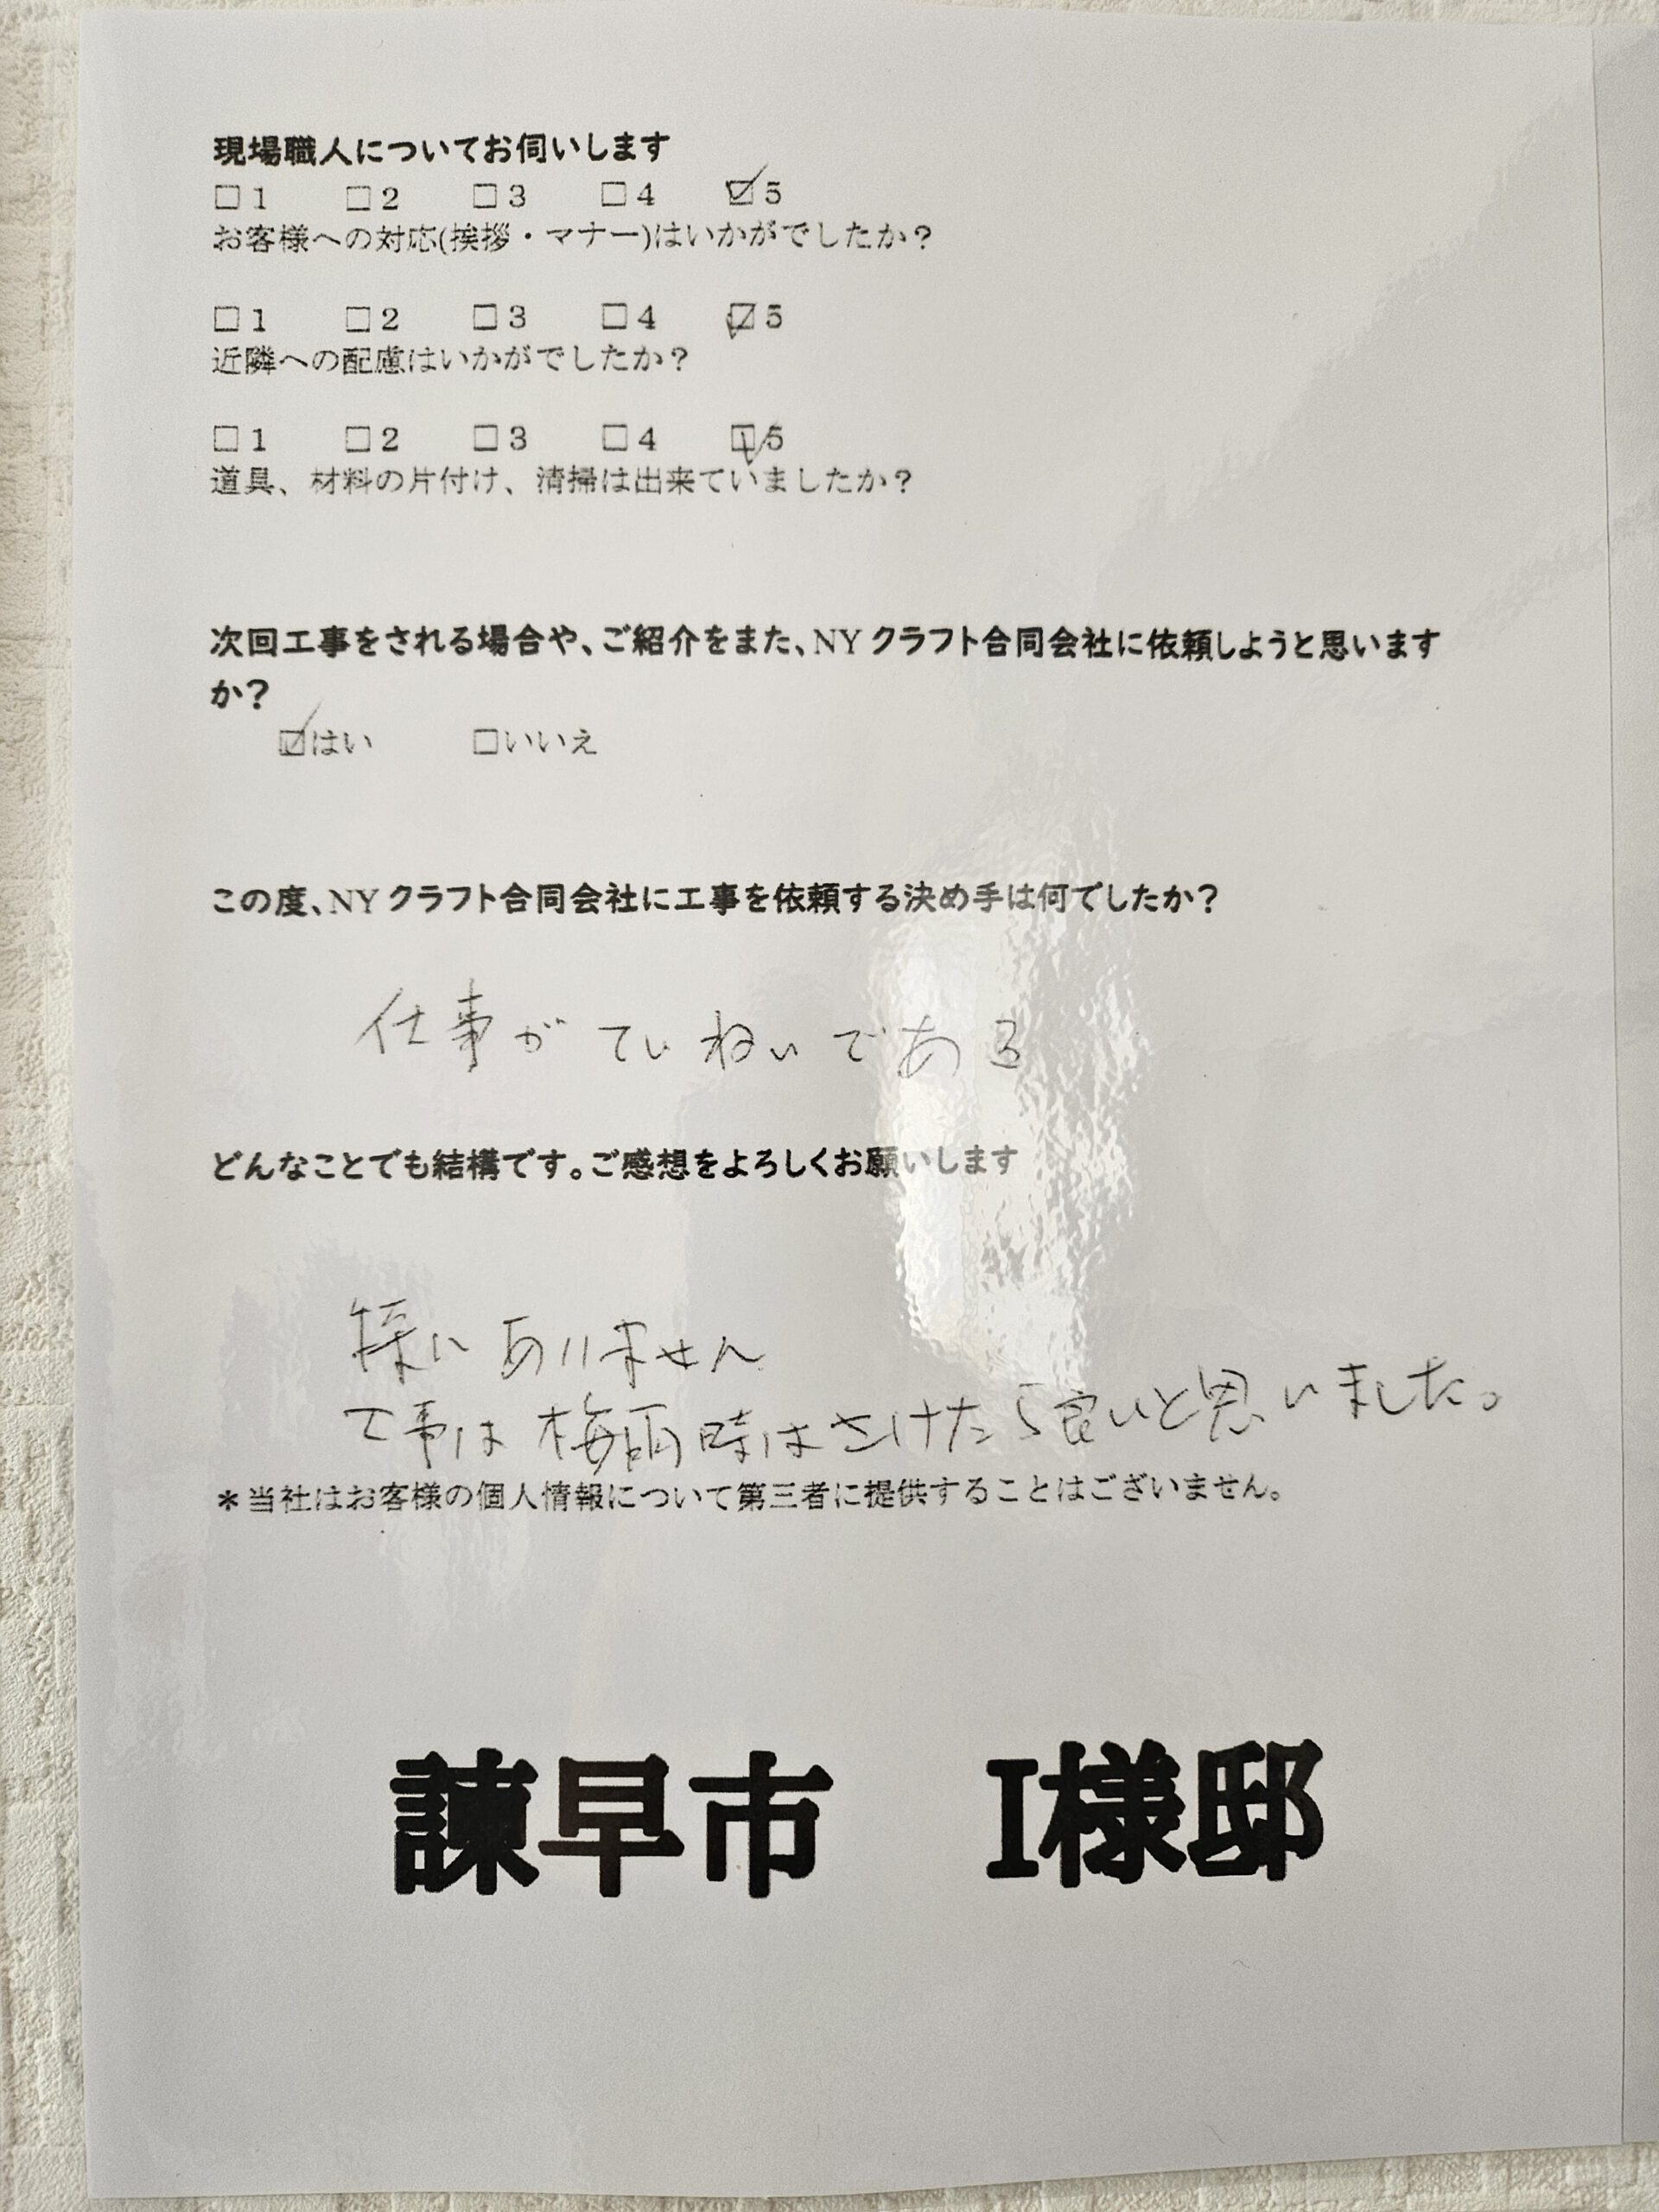 現場職人についてお伺いします
□1 □2 □3 □4 ☑5
お客様への対応(挨拶・マナー)はいかがでしたか？
□1 □2 □3 □4 ☑5
近隣への配慮はいかがでしたか？
□1 □2 □3 □4 ☑5
道具、材料の片付け、清掃は出来ていましたか？
次回工事をされる場合や、ご紹介をまた、NYクラフト合同会社に依頼しようと思います
か？
☑はい □いいえ
この度、NYクラフト合同会社に工事を依頼する決め手は何でしたか？
仕事がていねいである
どんなことでも結構です。ご感想をよろしくお願いします
ありません
工事は梅雨時はさけたら良いと思いました。
＊当社はお客様の個人情報について第三者に提供することはございません。
諫早市 I様邸